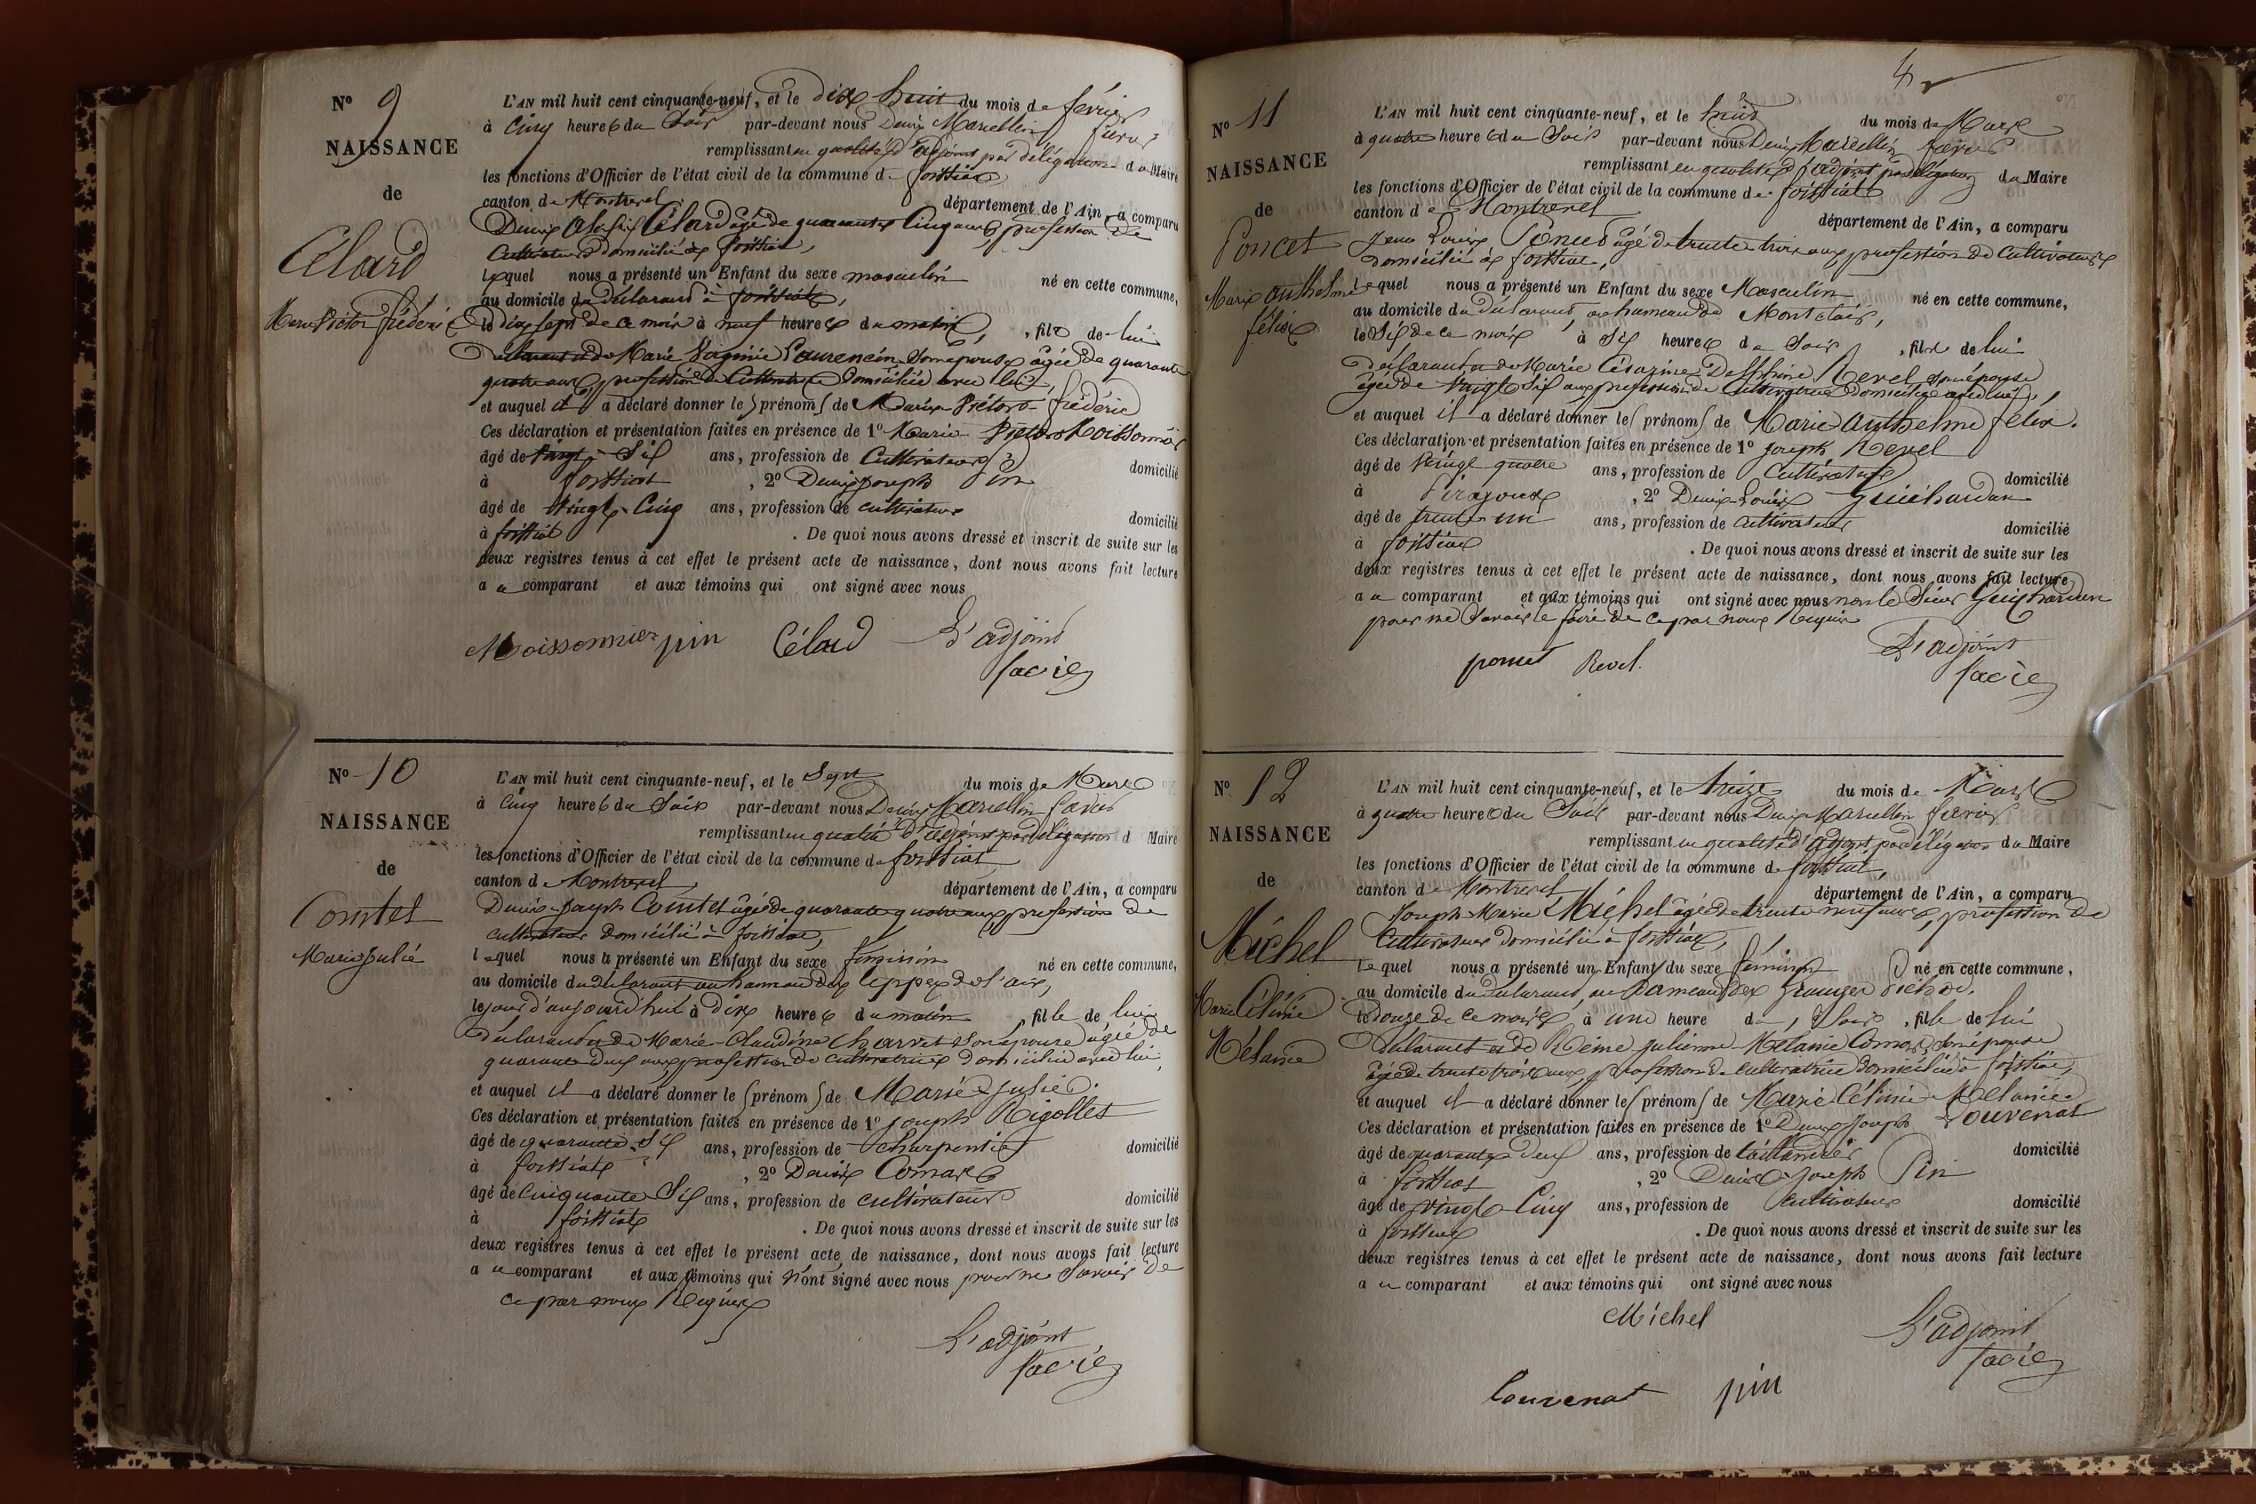 N° 9
NAISSANCE
de
Célard
Marie Victor Frédéric
L'AN mil huit cent cinquante-neuf, et le Dix huit du mois de février
à Cinq heures du Soir par-devant nous Denis Marcellin favier
remplissant en qualité d'adjoint par délégation du Maire
les fonctions d'Officier de l'état civil de la commune de foissiat
canton de Montrevel département de l'Ain, a comparu
Denis Célard âgé de quarante Cinq ans, profession de
Cultivateur Domicilié à foissiat,
lequel nous a présenté un Enfant du sexe masculin né en cette commune,
au domicile du déclarant à foissiat,
le dix sept de ce mois à neuf heures du matin, fils de lui
Déclarant et de Marie Virginie Laurencin Son épouse âgée de quarante
quatre ans, profession de Cultivatrice Domiciliée avec lui,
et auquel il a déclaré donner les prénoms de Marie Victor frédéric
Ces déclaration et présentation faites en présence de 1° Marie Victor Moissonnier
âgé de Vingt Six ans, profession de Cultivateur domicilié
à foissiat, 2° Denis Joseph Pin
âgé de Vingt Cinq ans, profession de cultivateur domicilié
à foissiat. De quoi nous avons dressé et inscrit de suite sur les
deux registres tenus à cet effet le présent acte de naissance, dont nous avons fait lecture
au comparant et aux témoins qui ont signé avec nous
Moissonnier pin Célard L'adjoint
favier
N° 10
NAISSANCE
de
Comtet
Marie Julie
L'AN mil huit cent cinquante-neuf, et le Sept du mois de Mars
à Cinq heures du Soir par-devant nous Denis Marcellin favier
remplissant en qualité d'adjoint par délégation d Maire
les fonctions d'Officier de l'état civil de la commune de foissiat
canton de Montrevel, département de l'Ain, a comparu
Denis Joseph Comtet âgé de quarante quatre ans, profession de
cultivateur Domicilié à foissiat,
lequel nous a présenté un Enfant du sexe féminin né en cette commune,
au domicile du déclarant au hameau de
le jour d'aujourd'hui à Dix heures du matin, fille de lui
Déclarant et de Marie Claudine Charvet Son épouse âgée de
quarante deux ans, profession de cultivatrice domiciliée avec lui,
et auquel il a déclaré donner les prénoms de Marie Julie.
Ces déclaration et présentation faites en présence de 1° Joseph Rigollet
âgé de quarante Six ans, profession de charpentier domicilié
à foissiat, 2° Denis Comas
âgé de Cinquante Six ans, profession de cultivateur domicilié
à foissiat. De quoi nous avons dressé et inscrit de suite sur les
deux registres tenus à cet effet le présent acte de naissance, dont nous avons fait lecture
au comparant et aux témoins qui n'ont signé avec nous pour ne Savoir de
ce par nous Requis
L'adjoint
favier
4
N° 11
NAISSANCE
de
Poncet
Marie Anthelme
félix
L'AN mil huit cent cinquante-neuf, et le huit du mois de Mars
à quatre heures du Soir par-devant nous Denis Marcellin favier
remplissant en qualité d'adjoint par délégation du Maire
les fonctions d'Officier de l'état civil de la commune de foissiat
canton de Montrevel département de l'Ain, a comparu
Jean Louis Poncet âgé de trente trois ans profession de Cultivateur
Domicilié à foissiat,
lequel nous a présenté un Enfant du sexe Masculin né en cette commune,
au domicile du déclarant, au hameau de Montclair,
le Six de ce mois à Six heures du Soir, fils de lui
Déclarant et de Marie Césarine Delphine Revel Son épouse
âgée de Vingt Six ans profession de Cultivatrice domiciliée avec lui,
et auquel il a déclaré donner les prénoms de Marie Anthelme félix.
Ces déclaration et présentation faites en présence de 1° Joseph Revel
âgé de Vingt quatre ans, profession de Cultivateur domicilié
à Pirajoux, 2° Denis Louis Guichardan
âgé de trente un ans, profession de cultivateur domicilié
à foissiat. De quoi nous avons dressé et inscrit de suite sur les
deux registres tenus à cet effet le présent acte de naissance, dont nous avons fait lecture
au comparant et aux témoins qui ont signé avec nous non le Sieur Guichardan
pour ne Savoir le faire de ce par nous Requis
poncet Revel. L'adjoint
favier
N° 12
NAISSANCE
de
Michel
Marie Céline
Mélanie
L'AN mil huit cent cinquante-neuf, et le treize du mois de Mars
à quatre heures du Soir par-devant nous Denis Marcellin favier
remplissant en qualité d'adjoint par délégation du Maire
les fonctions d'Officier de l'état civil de la commune de foissiat,
canton de Montrevel département de l'Ain, a comparu
Joseph Marie Michel âgé de trente neuf ans, profession de
Cultivateur Domicilié à foissiat,
lequel nous a présenté un Enfant du sexe féminin né en cette commune,
au domicile du déclarant, au hameau des Granges Pichod.
le douze de ce mois à une heure du Soir, fille de lui
Déclarant et de Reine Julienne Mélanie Comas, Son épouse
âgée de trente trois ans, profession de cultivatrice domiciliée à foissiat,
et auquel il a déclaré donner les prénoms de Marie Céline Mélanie.
Ces déclaration et présentation faites en présence de 1° Denis Joseph Louvenat
âgé de quarante Deux ans, profession de taillandier domicilié
à foissiat, 2° Denis Joseph Pin
âgé de vingt Cinq ans, profession de cultivateur domicilié
à foissiat. De quoi nous avons dressé et inscrit de suite sur les
deux registres tenus à cet effet le présent acte de naissance, dont nous avons fait lecture
au comparant et aux témoins qui ont signé avec nous
Michel L'adjoint
favier
Louvenat pin